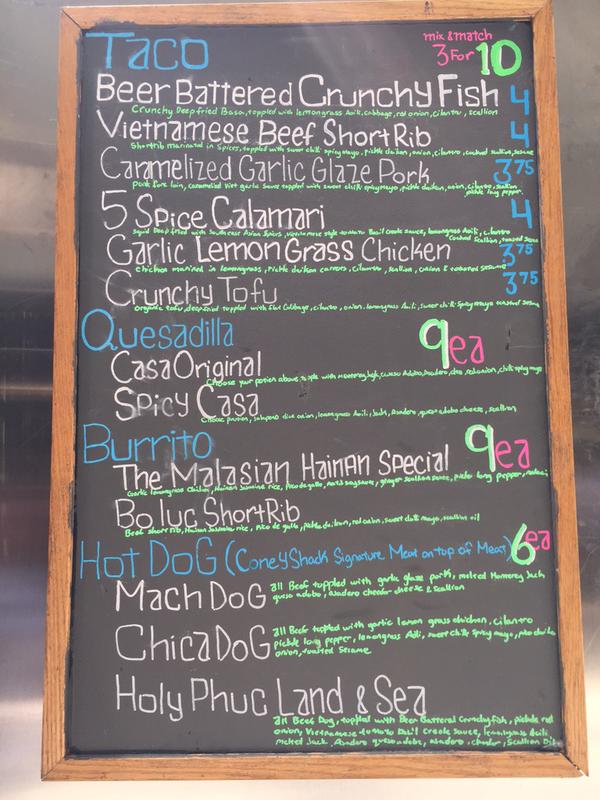 Taco
mix & match
3 For 10
Beer Battered Crunchy Fish 4
Crunchy Deep fried Basa, toppled with lemongrass Aoili, cabbage, red onion, cilantro, scallion
Vietnamese Beef Short Rib 4
Shortrib marinated in Spices, toppled with sweet chili spicy mayo, pickle daikon, onion, cilantro, scallion, sesame
Caramelized Garlic Glaze Pork 3.75
Pork lion, caramelized Viet garlic sauce toppled with sweet chili spicy mayo, pickle daikon, onion, cilantro, scallion
pickle long pepper
5 Spice Calamari 4
Squid Deep fried with Southeast Asian Spices, Vietnamese style tomato Basil Creole sauce, lemongrass Aoili, cilantro
scallion, toasted
Garlic LemonGrass Chicken 3.75
chicken marined in lemongrass, Pickle daikon carrots, cilantro, scallion, onions & toasted sesame
Crunchy Tofu 3.75
organic tofu, deep fried toppled with Cabbage, cilantro, onion, lemongrass Aoili, sweet chili Spicy mayo
Quesadilla 9ea
Casa Original
Choose your protien above, topple with Monterey Jack, Queso Adobo, Asadero, red onion, chili spicy mayo
Spicy Casa
Choose protien, Jalapeno, onion, lemongrass Aoili, Jack, Asadero, queso adobo cheese, scallion
Burrito 9ea
The Malasian Hainan Special
Garlic lemongrass Chicken, Hainan Jasmine rice, Pico de gallo, ginger scallion sauce, pickle long pepper
Bo luc Short Rib
Beef short rib, Hainan Jasmine rice, Pico de gallo, pickle daikon, red onion, sweet chili mayo, scallion oil
Hot DoG (Coney Shack Signature Meat on top of Meat) 6ea
Mach DoG all Beef toppled with garlic glaze pork, melted Monterey Jack
queso adobo, asadero cheddar cheese & scallion
Chica DoG all Beef toppled with garlic lemon grass chicken, cilantro
pickle long pepper, lemongrass Aoili, sweet chili spicy mayo,
onion, toasted Sesame
Holy Phuc Land & Sea
all Beef Dog, toppled with Beer Battered Crunchy fish, pickle red
onion, Vietnamese tomato Basil creole Sauce, lemongrass Aoili
melted Jack, Asadero queso adobe, asadero, chedar, Scallion Oil